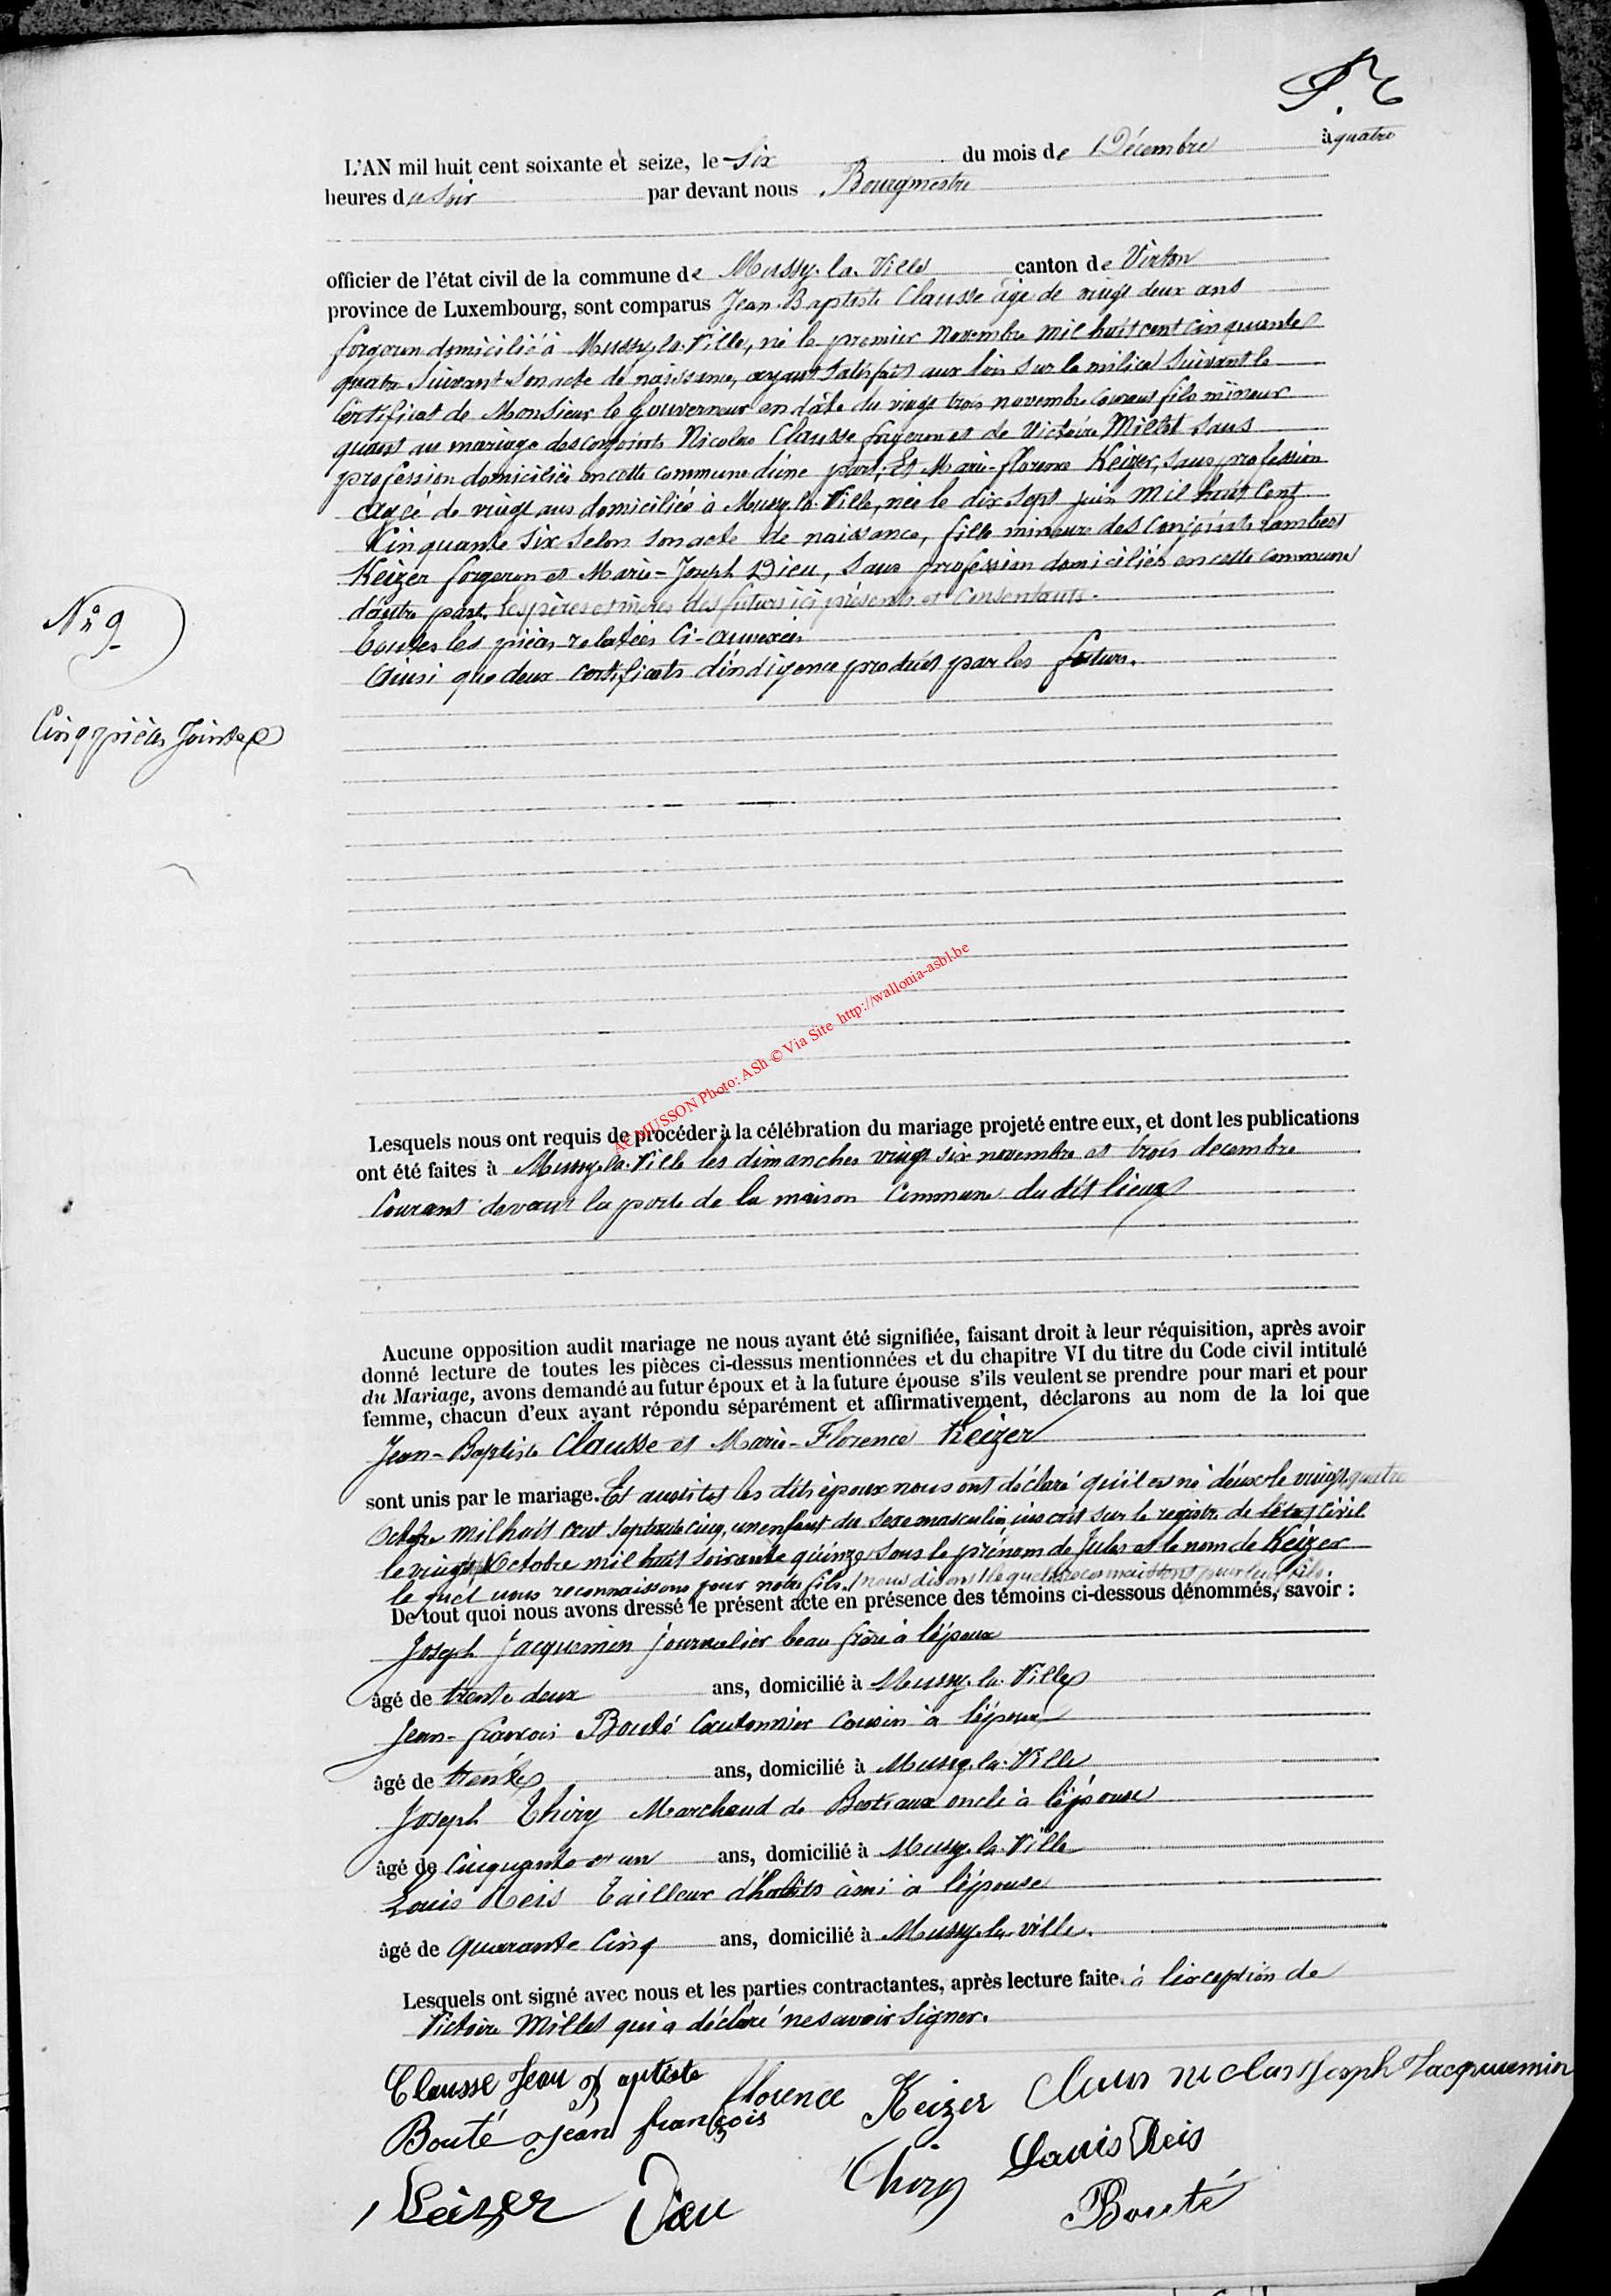 L'AN mil huit cent soixante et seize, le Six du mois de Décembre à quatre
heures du Soir par devant nous Bourgmestre
officier de l'état civil de la commune de Mussy-la-Ville canton de Virton
province de Luxembourg, sont comparus Jean-Baptiste Clausse âgé de vingt deux ans
forgeron domicilié à Mussy-la-Ville, né le premier Novembre mil huit cent cinquante
quatre Suivant Son acte de naissance, ayant Satisfait aux lois sur la milice Suivant le
Certificat de Monsieur le Gouverneur en date du vingt trois novembre Courant fils mineur
quant au mariage des conjoints Nicolas Clausse forgeron et de Victoire Millet Sans
profession domiciliés en cette commune d'une part; Et Marie-florence Keizer, Sans profession
âgée de vingt ans domiciliée à Mussy-la-Ville, née le dix Sept juin Mil huit Cent
Cinquante Six Selon Son acte de naissance, fille mineure des Conjoints Lambert
Keizer forgeron et Marie-Joseph Dieu, Sans profession domiciliés en cette Commune
d'autre part. Les pères et mères des futurs ici présents et Consentants.
Toutes les pièces relatées Ci-annexées
Ainsi que deux certificats d'indigence produits par les futurs.
N° 9
Cinq pièces Jointes
Lesquels nous ont requis de procéder à la célébration du mariage projeté entre eux, et dont les publications
ont été faites à Mussy-la-Ville les dimanches vingt six novembre et trois decembre
Courant devant la porte de la maison Commune du dit lieu
Aucune opposition audit mariage ne nous ayant été signifiée, faisant droit à leur réquisition, après avoir
donné lecture de toutes les pièces ci-dessus mentionnées et du chapitre VI du titre du Code civil intitulé
du Mariage, avons demandé au futur époux et à la future épouse s'ils veulent se prendre pour mari et pour
femme, chacun d'eux ayant répondu séparément et affirmativement, déclarons au nom de la loi que
Jean-Baptiste Clausse et Marie-Florence Keizer
sont unis par le mariage. Et aussitot les dits époux nous ont déclaré qu'il est né d'eux le vingt quatre
Octobre mil huit cent Septante cinq, un enfant du Sexe masculin, inscrit sur le registre de l'état Civil
le vingt Octobre mil huit soixante quinze Sous le prénom de Jules et le nom de Keizer
le quel nous reconnaissons pour notre fils. nous disons lequel reconnaissent pour leur fils.
De tout quoi nous avons dressé le présent acte en présence des témoins ci-dessous dénommés, savoir :
Joseph Jacquemin Journalier beau frère à l'époux
âgé de trente deux ans, domicilié à Mussy-la-Ville
Jean-françois Bouté Cantonnier Cousin à l'époux
âgé de trente ans, domicilié à Mussy-la-Ville
Joseph Thiry Marchand de Bestiaux oncle à l'épouse
âgé de Cinquante et un ans, domicilié à Mussy-la-Ville
Louis Reis Tailleur d'habits ami à l'épouse
âgé de quarante Cinq ans, domicilié à Mussy-la-ville.
Lesquels ont signé avec nous et les parties contractantes, après lecture faite. à l'exception de
Victoire Millet qui a déclaré ne savoir Signer.
Clausse Jean Baptiste florence Keizer Claus niclas Joseph Jacquemin
Bouté Jean françois Thiry Louis Reis
Keizer Dieu Bouté
AC MUSSON Photo: ASh © Via Site http://wallonia-asbl.be